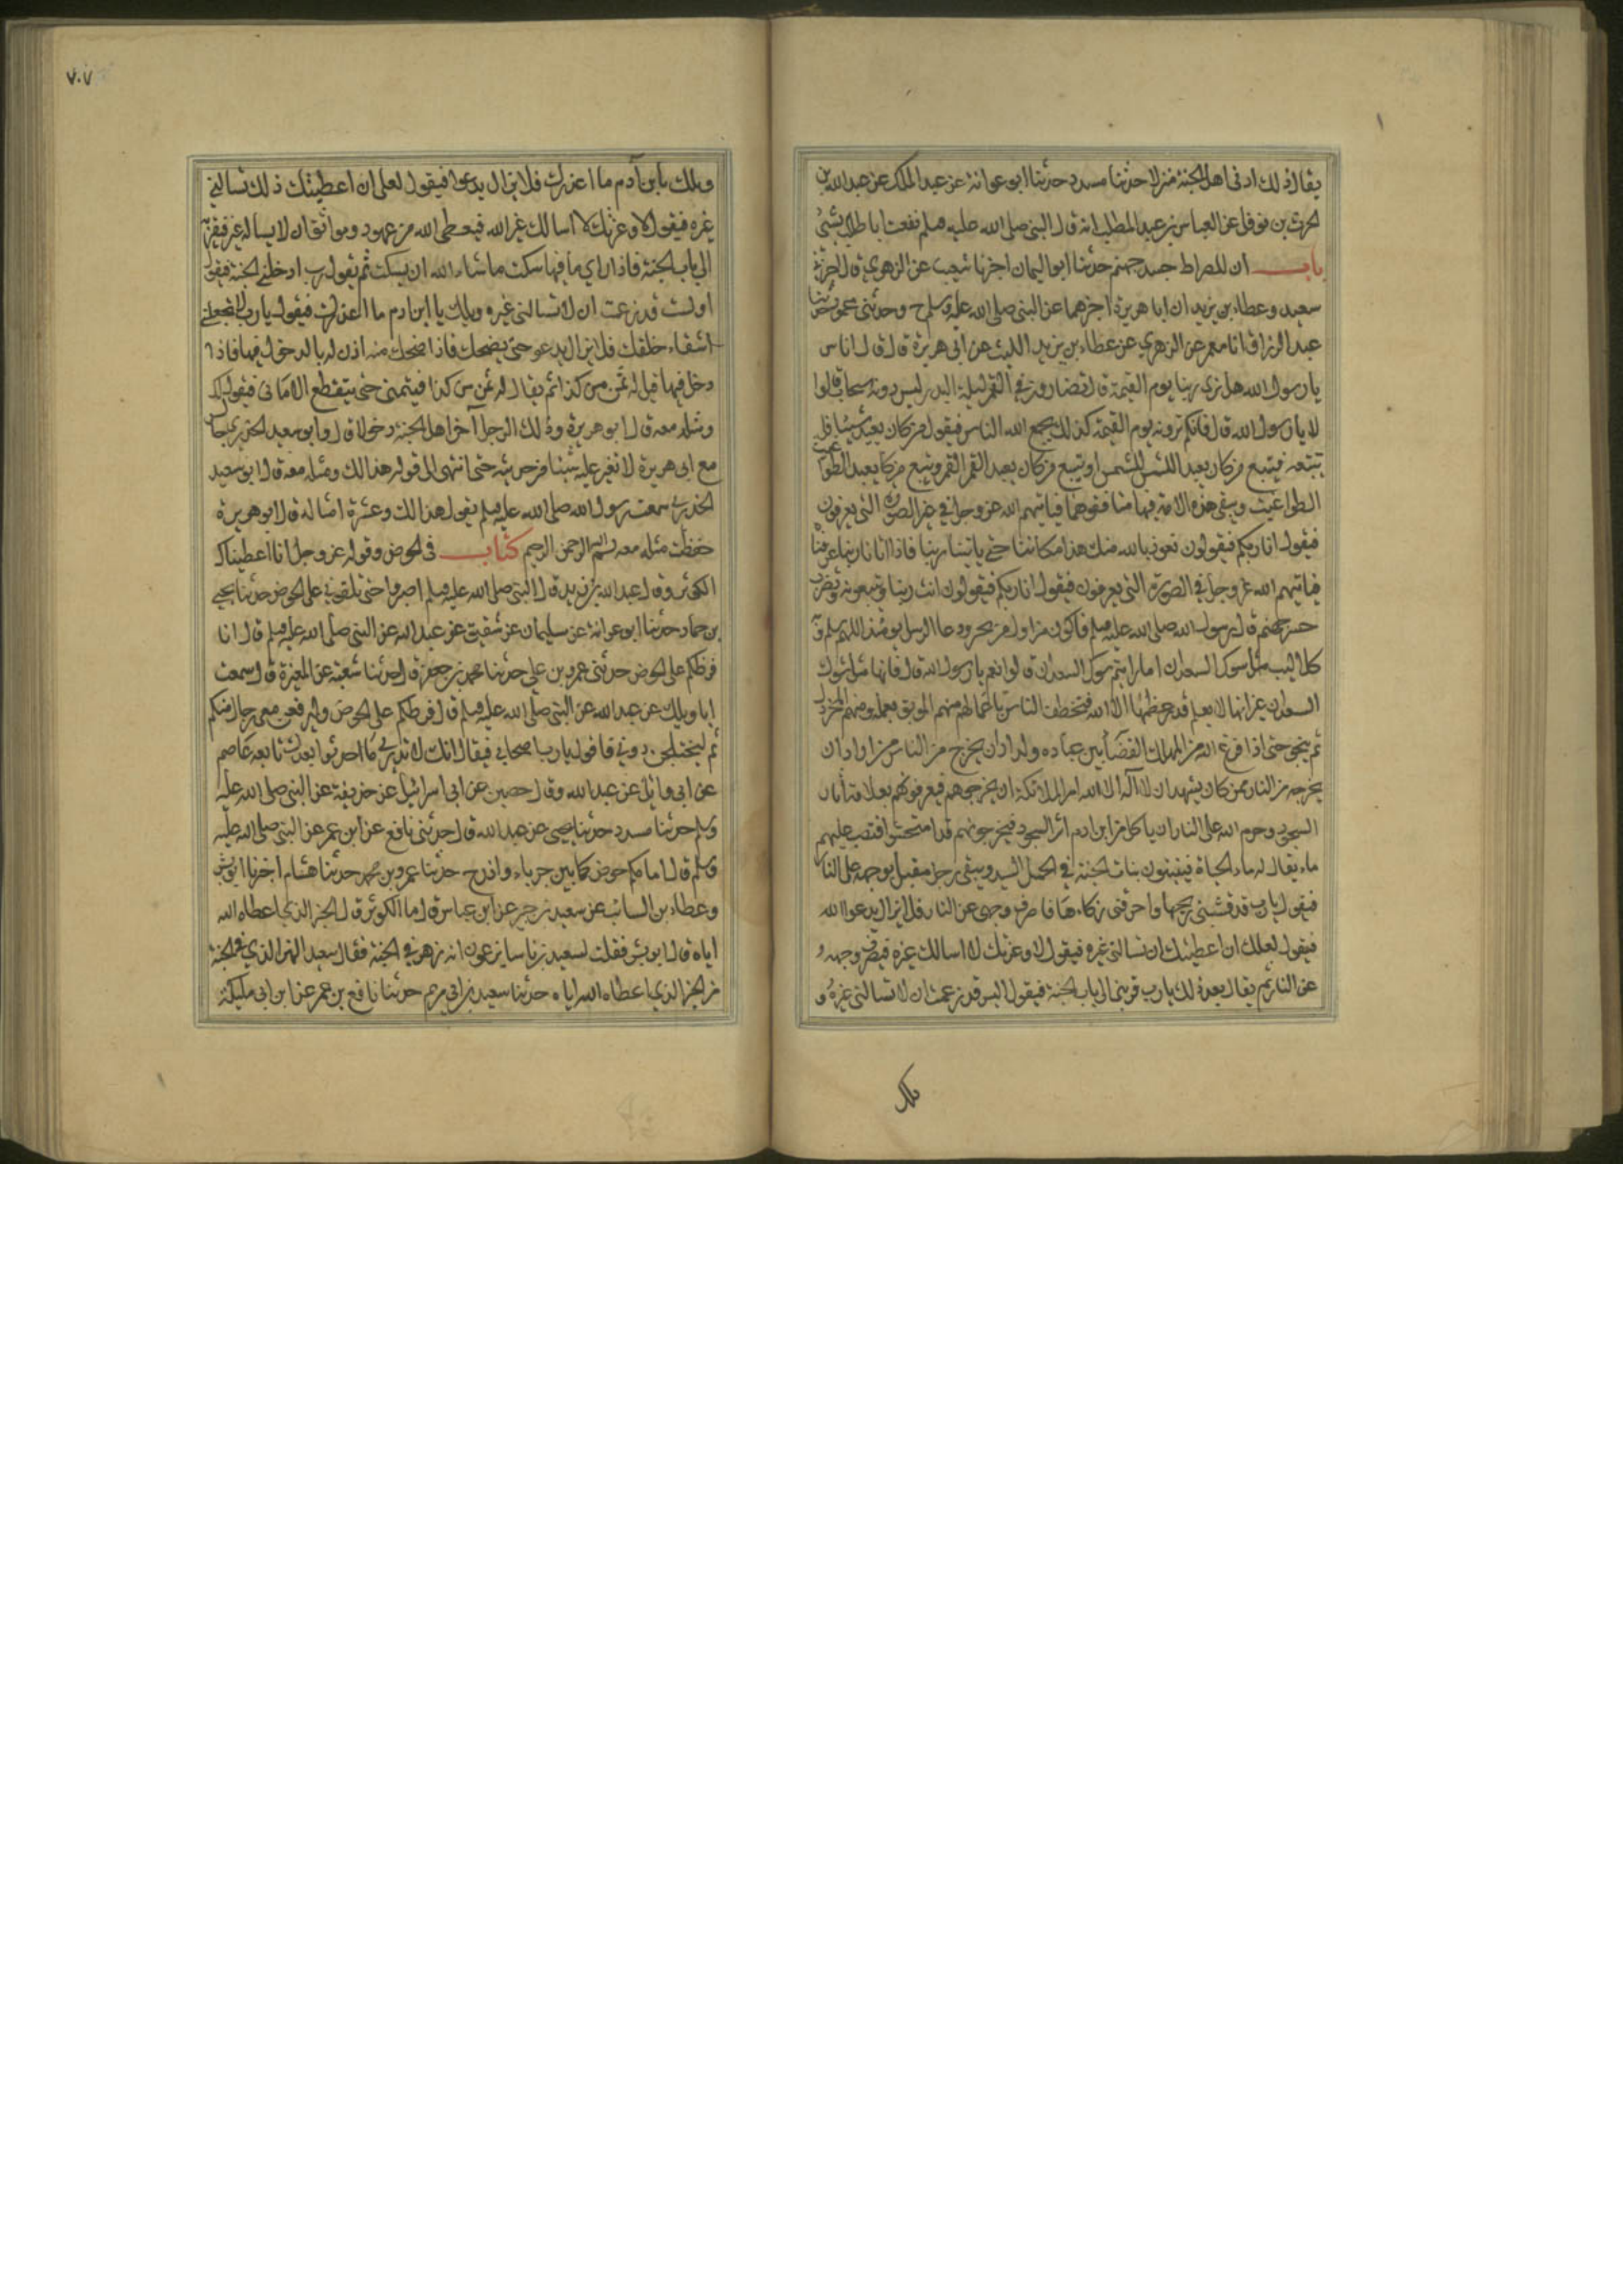 يقال ذلك ادنى اهل الجنة منزلا حدثنا مسدد حدثنا ابو عوانة عن عبد الملك عن عبد الله بن
الحرث بن نوفل عن العباس بن عبد المطلب انه قال للنبي صلى الله عليه وسلم نفعت ابا طالب بشئ
باب ان للصراط جسر جهنم حدثنا ابو اليمان اخبرنا شعيب عن الزهري قال اخبرني
سعيد وعطاء بن يزيد ان ابا هريرة اخبرهما عن النبي صلى الله عليه وسلم ح وحدثني محمود حدثنا
عبد الرزاق انا معمر عن الزهري عن عطاء بن يزيد الليث عن ابي هريرة قال قال اناس
يا رسول الله هل نرى ربنا يوم القيمة قال تضارون في القمر ليلة البدر ليس دونه سحاب قالوا
لا يا رسول الله قال فانكم ترونه يوم القيمة كذلك يجمع الله الناس فيقول من كان يعبد شيئا فل
يتبعه فيتبع من كان يعبد الشمس الشمس ويتبع من كان يعبد القمر القمر ويتبع من كان يعبد الطوا
الطواغيت ويبقى هذه الامة فيها منافقوها فياتيهم الله عز وجل في غير الصورة التي يعرفون
فيقول انا ربكم فيقولون نعوذ بالله منك هذا مكاننا حتى ياتينا ربنا فاذا اتانا ربنا عرفناه
فياتيهم الله عز وجل في الصورة التي يعرفون فيقول انا ربكم فيقولون انت ربنا فيتبعونه ويضرب
جسر جهنم قال رسول الله صلى الله عليه وسلم فاكون من اول من يجيز ودعا الرسل يومئذ اللهم سلم و
كلاليب مثل شوك السعدان اما رايتم شوك السعدان قالوا نعم يا رسول الله قال فانها مثل شوك
السعدان غير انها لا يعلم قدر عظمها الا الله فتخطف الناس باعمالهم منهم الموبق بعمله ومنهم المخردل
ثم ينجو حتى اذا فرغ الله من القضا بين عباده واراد ان يخرج من الناس من اراد ان
يخرجه من النار ممن كان يشهد ان لا اله الا الله امر الملائكة ان يخرجوهم فيعرفونهم بعلامة اثار
السجود وحرم الله على النار ان ياكل من ابن ادم اثر السجود فيخرجونهم قد امتحشوا فتصب عليهم
ماء يقال له ماء الحياة فينبتون نبات الجنة في الحميل السيد ويبقى رجل مقبل بوجهه على النار
فيقول يا رب قد قشبني ريحها واحرقني ذكاءها فاصرف وجهى عن النار فلا يزال يدعوا الله
فيقول لعلك ان اعطيتك ان تسالني غيره فيقول لا وعزتك لا اسالك غيره فيصرف وجهه
عن النار ثم يقال بعد ذلك يا رب قربني الى باب الجنة فيقول اليس قد زعمت ان لا تسالني غيره و
ملك
٧٠٧
ويلك يابن آدم ما اغدرك فلا يزال يدعوا فيقول لعلي ان اعطيتك ذلك تسالني
غيره فيقول لا وعزتك لا اسالك غير الله فيعطى الله من عهود ومواثق ان لا يساله غيره فيقربه
الى باب الجنة فاذا راى ما فيها سكت ما شاء الله ان يسكت ثم يقول رب ادخلني الجنة فيقول
اولست قد زعمت ان لا تسالني غيره ويلك يا ابن ادم ما اغدرك فيقول يا رب لا تجعلني
اشقاء خلقك فلا يزال يدعو حتى يضحك فاذا ضحك منه اذن له بالدخول فيها فاذا
دخل فيها قيل له تمن من كذا ثم يقال له تمن من كذا فيتمنى حتى ينقطع الاماني فيقول لك
ومثله معه قال ابو هريرة وذلك الرجل آخر اهل الجنة دخولا قال وابو سعيد الخدري جالس
مع ابى هريرة لا يغير عليه شيئا من حديثه حتى انتهى الى قوله هذا لك ومثله معه قال ابو سعيد
الخدري سمعت رسول الله صلى الله عليه وسلم يقول هذا لك وعشرة امثاله قال ابو هريرة
حفظت مثله معه بسم الله الرحمن الرحيم كتاب فى الحوض وقوله عز وجل انا اعطيناك
الكوثر وقال عبد الله بن زيد قال النبي صلى الله عليه وسلم اصبروا حتى تلقوني على الحوض حدثنا يحيى
بن حماد حدثنا ابو عوانة عن سليمان عن شقيق عن عبد الله عن النبي صلى الله عليه وسلم قال انا
فرطكم على الحوض حدثنى عمرو بن علي حدثنا محمد بن جعفر قال حدثنا شعبة عن المغيرة قال سمعت
ابا وايل عن عبد الله عن النبي صلى الله عليه وسلم قال فرطكم على الحوض وليرفعن معى رجال منكم
ثم ليختلجن دوني فاقول يا رب اصحابي فيقال انك لا تدرى ما احدثوا بعدك تابعه عاصم
عن ابى وائل عن عبد الله وقال حصين عن ابى اسرائيل عن حذيفة عن النبي صلى الله عليه
وسلم حدثنا مسدد حدثنا يحيى عن عبد الله قال حدثنى نافع عن ابن عمر عن النبي صلى الله عليه
وسلم قال امامكم حوض كما بين جرباء واذرح حدثنا عمرو بن محمد حدثنا هشام اخبرنا ابو بشر
وعطاء بن السائب عن سعيد بن جبير عن ابن عباس قال ما الكوثر قال الخير الذى اعطاه الله
اياه قال ابو بشر فقلت لسعيد ان اناسا يزعمون انه نهر في الجنة فقال سعيد النهر الذي في الجنة
من الخير الذى اعطاه الله اياه حدثنا سعيد بن ابي مريم حدثنا نافع بن عمر عن ابن ابى مليكة